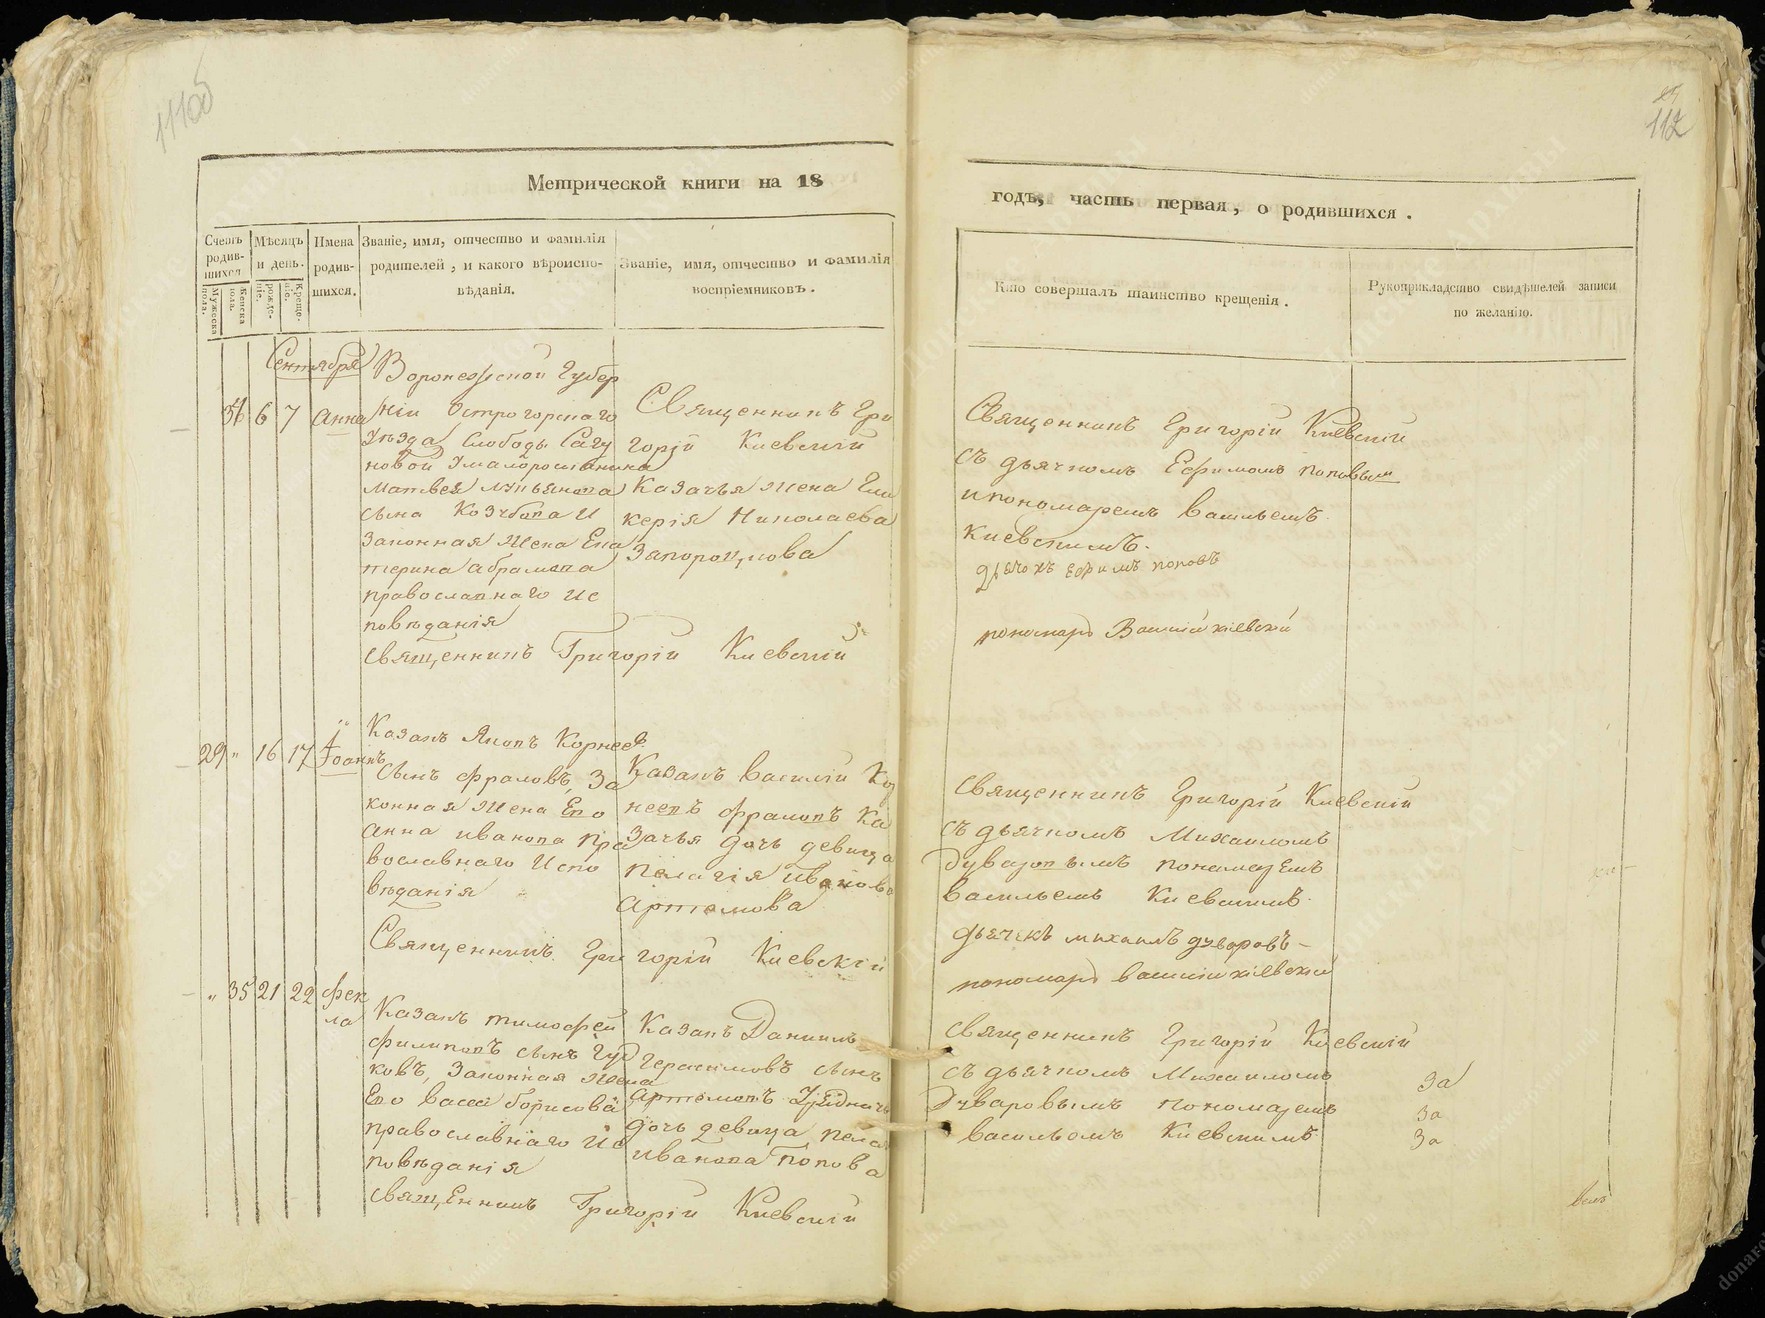 112
Метрической книги на 18
годъ, часть первая, о родившихся.
Счетъ родив-
шихся
Мужеска пола.
Женска пола.
Мѣсяцъ
и день.
рожде-
ніе.
Креще-
ніе.
Имена
родив-
шихся.
Званіе, имя, отчество и фамилія
родителей, и какого вѣроиспо-
вѣданія.
Званіе, имя, отчество и фамилія
воспріемниковъ.
Кто совершалъ таинство крещенія.
Рукоприкладство свидѣтелей записи
по желанію.
Сентября
34 6 7 Анна
Воронежской Губер
ніи Острогорскаго
Уѣзда Слободы Сагу
новой Умалоросіянина
Матвея Лукьянова
сына Козубова и
Законная Жена Ека
терина Абрамова
православнаго ис
повѣданія
Священникъ Гри
горій Киевскій
Казачья Жена Гли
керія Николаева
Запорожцова
Священникъ Григорій Киевскій
Священникъ Григорій Киевскій
съ дьячкомъ Ефимомъ Поповым
и пономаремъ Васильемъ
Киевскимъ.
Дьячокъ Ефимъ Поповъ
пономарь Василий Кіевский
29 " 16 17 Іоаннъ
Казакъ Яковъ Корнеевъ
сынъ Фраловъ, За
конная Жена Его
Анна Иванова Пра
вославнаго Испо
вѣданія
Казакъ Василій Кор
неевъ Фраловъ Ка
зачья дочь девица
Пелагія Иванова
Артемова
Священникъ Григорій Киевскій
Священникъ Григорій Киевскій
съ дьячкомъ Михаиломъ
Дуваровымъ пономаремъ
Васильемъ Киевскимъ.
Дьячекъ Михаилъ Дуваровъ
пономарь Василий Кіевский
" 35 21 22 Фек
ла
Казакъ Тимофей
Филиповъ сынъ Гуд
ковъ, Законная Жена
Его Васса Борисова
православнаго Ис
повѣданія
Казакъ Даниилъ
Герасимовъ сынъ
Артемовъ Урядничья
дочь девица Пела
Иванова Попова
Священникъ Григорій Киевскій
Священникъ Григорій Киевскій
съ дьячкомъ Михаиломъ
Дуваровымъ пономаремъ
Васильомъ Киевскимъ
За
За
За